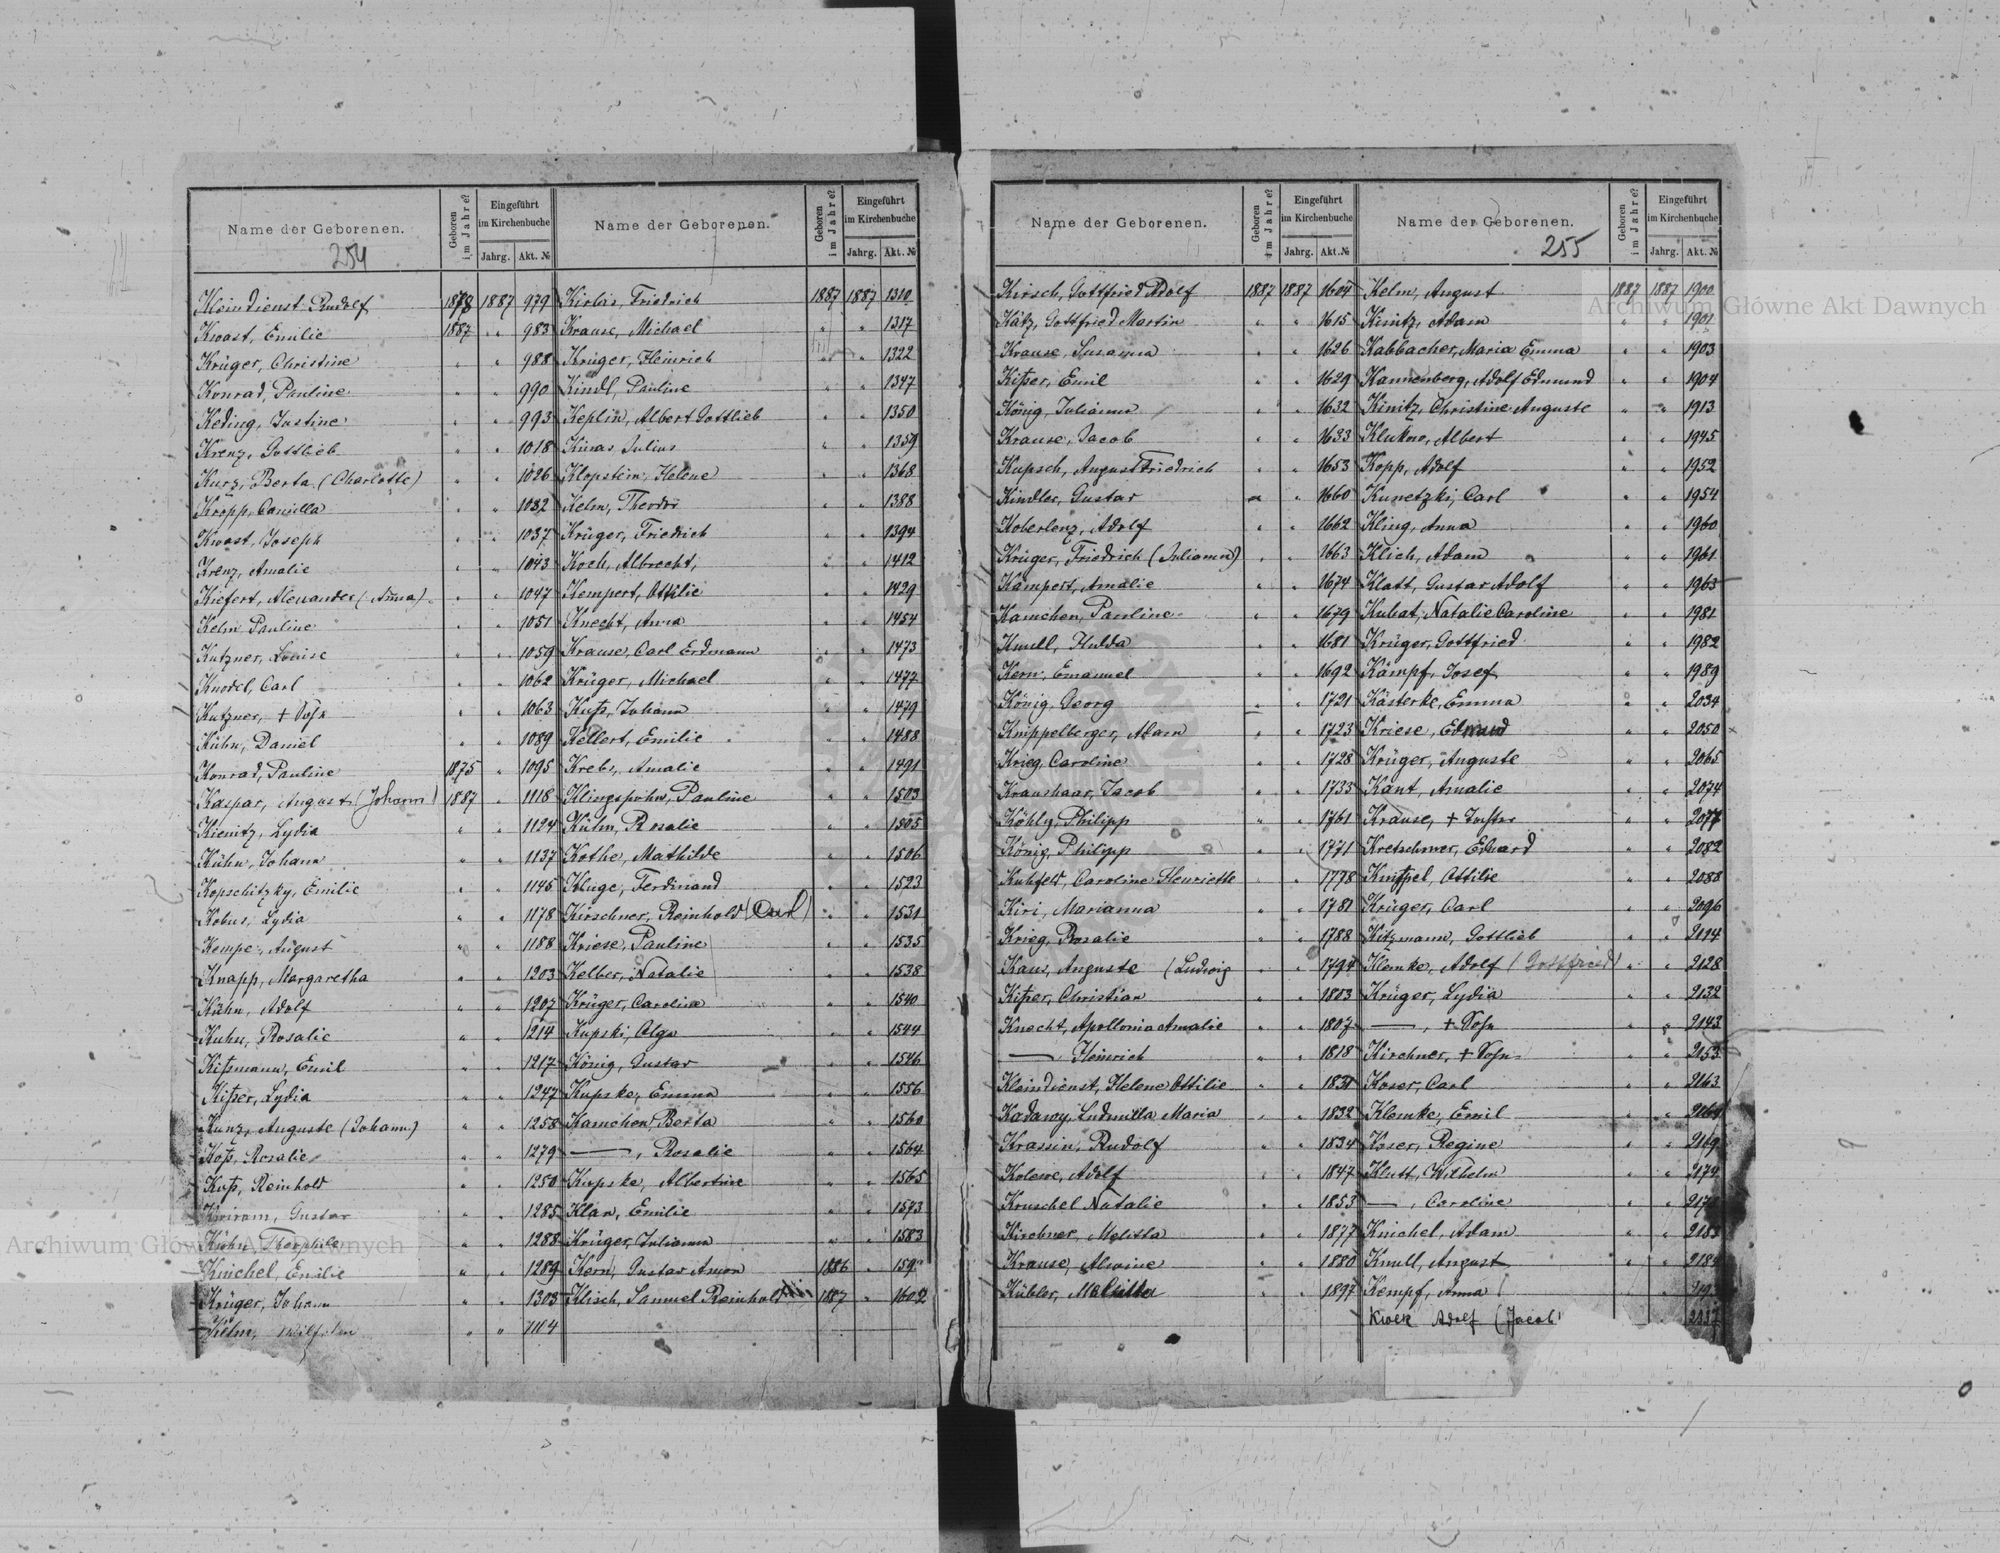 Name der Geborenen.
Geboren im Jahre?
Eingeführt im Kirchenbuche
Jahrg.
Akt. №
Name der Geborenen.
Geboren im Jahre?
Eingeführt im Kirchenbuche
Jahrg.
Akt. №
254
Kleindienst Rudolf 1878 1887 979
Kwast, Emilie 1887 " 983
Krüger, Christine " " 988
Konrad, Pauline " " 990
Keding, Justine " " 993
Krenz, Gottlieb " " 1018
Kurz, Berta (Charlotte) " " 1026
Kropp, Camilla " " 1032
Kwast, Joseph " " 1037
Krenz, Amalie " " 1043
Kiefert, Alexander (Anna) " " 1047
Kelm Pauline " " 1051
Kutzner, Louise " " 1059
Knodel, Carl " " 1062
Kutzner, + Sohn " " 1063
Kühn, Daniel " " 1089
Konrad, Pauline 1875 " 1095
Kaspar, August (Johann) 1887 " 1118
Kienitz, Lydia " " 1124
Kühn, Johann " " 1137
Kopschitzky, Emilie " " 1145
Kobus, Lydia " " 1178
Kempe, August " " 1188
Knapp, Margaretha " " 1203
Kühn, Adolf " " 1207
Kuhn, Rosalie " " 1214
Kißmann, Emil " " 1217
Kißer, Lydia " " 1247
Kunz, Auguste (Johann) " " 1258
Koß, Rosalie " " 1279
Kuß, Reinhold " " 1250
Gustav " " 1285
Kühn, Theophile " " 1288
Knichel, Emilie " " 1289
Krüger, Johann " " 1303
Kelm, " " 1104
Friedrich 1887 1887 1310
Krause, Michael " " 1317
Krüger, Heinrich " " 1322
Kindl, Pauline " " 1347
Keplin, Albert Gottlieb " " 1350
Kinas Julius " " 1359
Klopstein, Helene " " 1368
Kelm, Theodor " " 1388
Krüger, Friedrich " " 1394
Koch, Albrecht, " " 1412
Kempert, Ottilie " " 1429
Knecht, Anna " " 1454
Krause, Carl Erdmann " " 1473
Krüger, Michael " " 1477
Kuß, Johann " " 1479
Kellert, Emilie " " 1488
Krebs, Amalie " " 1491
Klingspohn, Pauline " " 1503
Kühn, Rosalie " " 1505
Kothe, Mathilde " " 1506
Kluge, Ferdinand " " 1523
Kirschner, Reinhold (Carl) " " 1531
Kriese, Pauline " " 1535
Kelber, Natalie " " 1538
Krüger, Caroline " " 1540
Kupski, Olga " " 1544
König, Gustav " " 1546
Kupske, Emma " " 1556
Kamchen, Berta " " 1560
—, Rosalie " " 1564
Kupske, Albertine " " 1565
Klan, Emilie " " 1573
Krüger, Julianna " " 1583
Kern, Gustav 1886 "
Klisch, Samuel Reinhold 1887 " 1602
Name der Geborenen.
Geboren im Jahre?
Eingeführt im Kirchenbuche
Jahrg.
Akt. №
Name der Geborenen.
Geboren im Jahre?
Eingeführt im Kirchenbuche
Jahrg.
Akt. №
255
Kirsch, Gottfried Adolf 1887 1887 1604
Kätz, Gottfried Martin " " 1615
Krause, Susanna " " 1626
Kißer, Emil " " 1629
König, Julianna " " 1632
Krause, Jacob " " 1633
Kupsch, August Friedrich " " 1653
Kindler, Gustav " " 1660
Koberlenz, Adolf " " 1662
Krüger, Friedrich (Julianna) " " 1663
Kampert, Amalie " " 1674
Kamchen, Pauline " " 1679
Knull, Hulda " " 1681
Kern, Emanuel " " 1692
König, Georg " " 1721
Knippelberger, Adam " " 1723
Krieg, Caroline " " 1728
Kraushaar, Jacob " " 1733
Köhly, Philipp " " 1761
König, Philipp " " 1771
Kuhfeld, Caroline Henriette " " 1778
Kiri, Marianna " " 1781
Krieg, Rosalie " " 1788
Auguste (Ludwig " " 1794
Kißer, Christian " " 1803
Knecht, Apollonia Amalie " " 1807
—, Heinrich " " 1818
Kleindienst, Helene Ottilie " " 1831
Kadawy, Ludmilla Maria " " 1832
Krassin, Rudolf " " 1834
Kolewe, Adolf " " 1847
Kruschel Natalie " " 1853
Kirchner, Melitta " " 1877
Krause, Alwine " " 1880
Kübler, Melitta " " 1897
Kelm, August 1887 1887 1900
Kinitz, Adam " " 1901
Kabbacher, Maria Emma " " 1903
Kannenberg, Adolf Edmund " " 1904
Kinitz, Christine Auguste " " 1913
Albert " " 1945
Kopp, Adolf " " 1952
Kunetzki, Carl " " 1954
Kling, Anna " " 1960
Klich, Adam " " 1961
Klatt, Gustav Adolf " " 1963
Kubat, Natalie Caroline " " 1981
Krüger, Gottfried " " 1982
Kämpf, Josef " " 1989
Kästerke, Emma " " 2034
Kriese, Eduard " " 2050
Krüger, Auguste " " 2065
Kant, Amalie " " 2074
Krause, + Tochter " " 2077
Kretschmer, Eduard " " 2082
Knippel, Ottilie " " 2088
Krüger, Carl " " 2096
Kitzmann, Gottlieb " " 2114
Klemke, Adolf (Gottfried) " " 2128
Krüger, Lydia " " 2132
—, + Sohn " " 2143
Kirchner, + Sohn " " 2153
Koser, Carl " " 2163
Klemke, Emil " "
Koser, Regine " " 2169
Klatt, Wilhelm " " 2174
—, Caroline " "
Knichel, Adam " " 2183
Knull, August " " 2184
Kempf, Anna
Kwek Adolf (Jacob) 2137
Archiwum Główne Akt Dawnych
Archiwum Główne Akt Dawnych